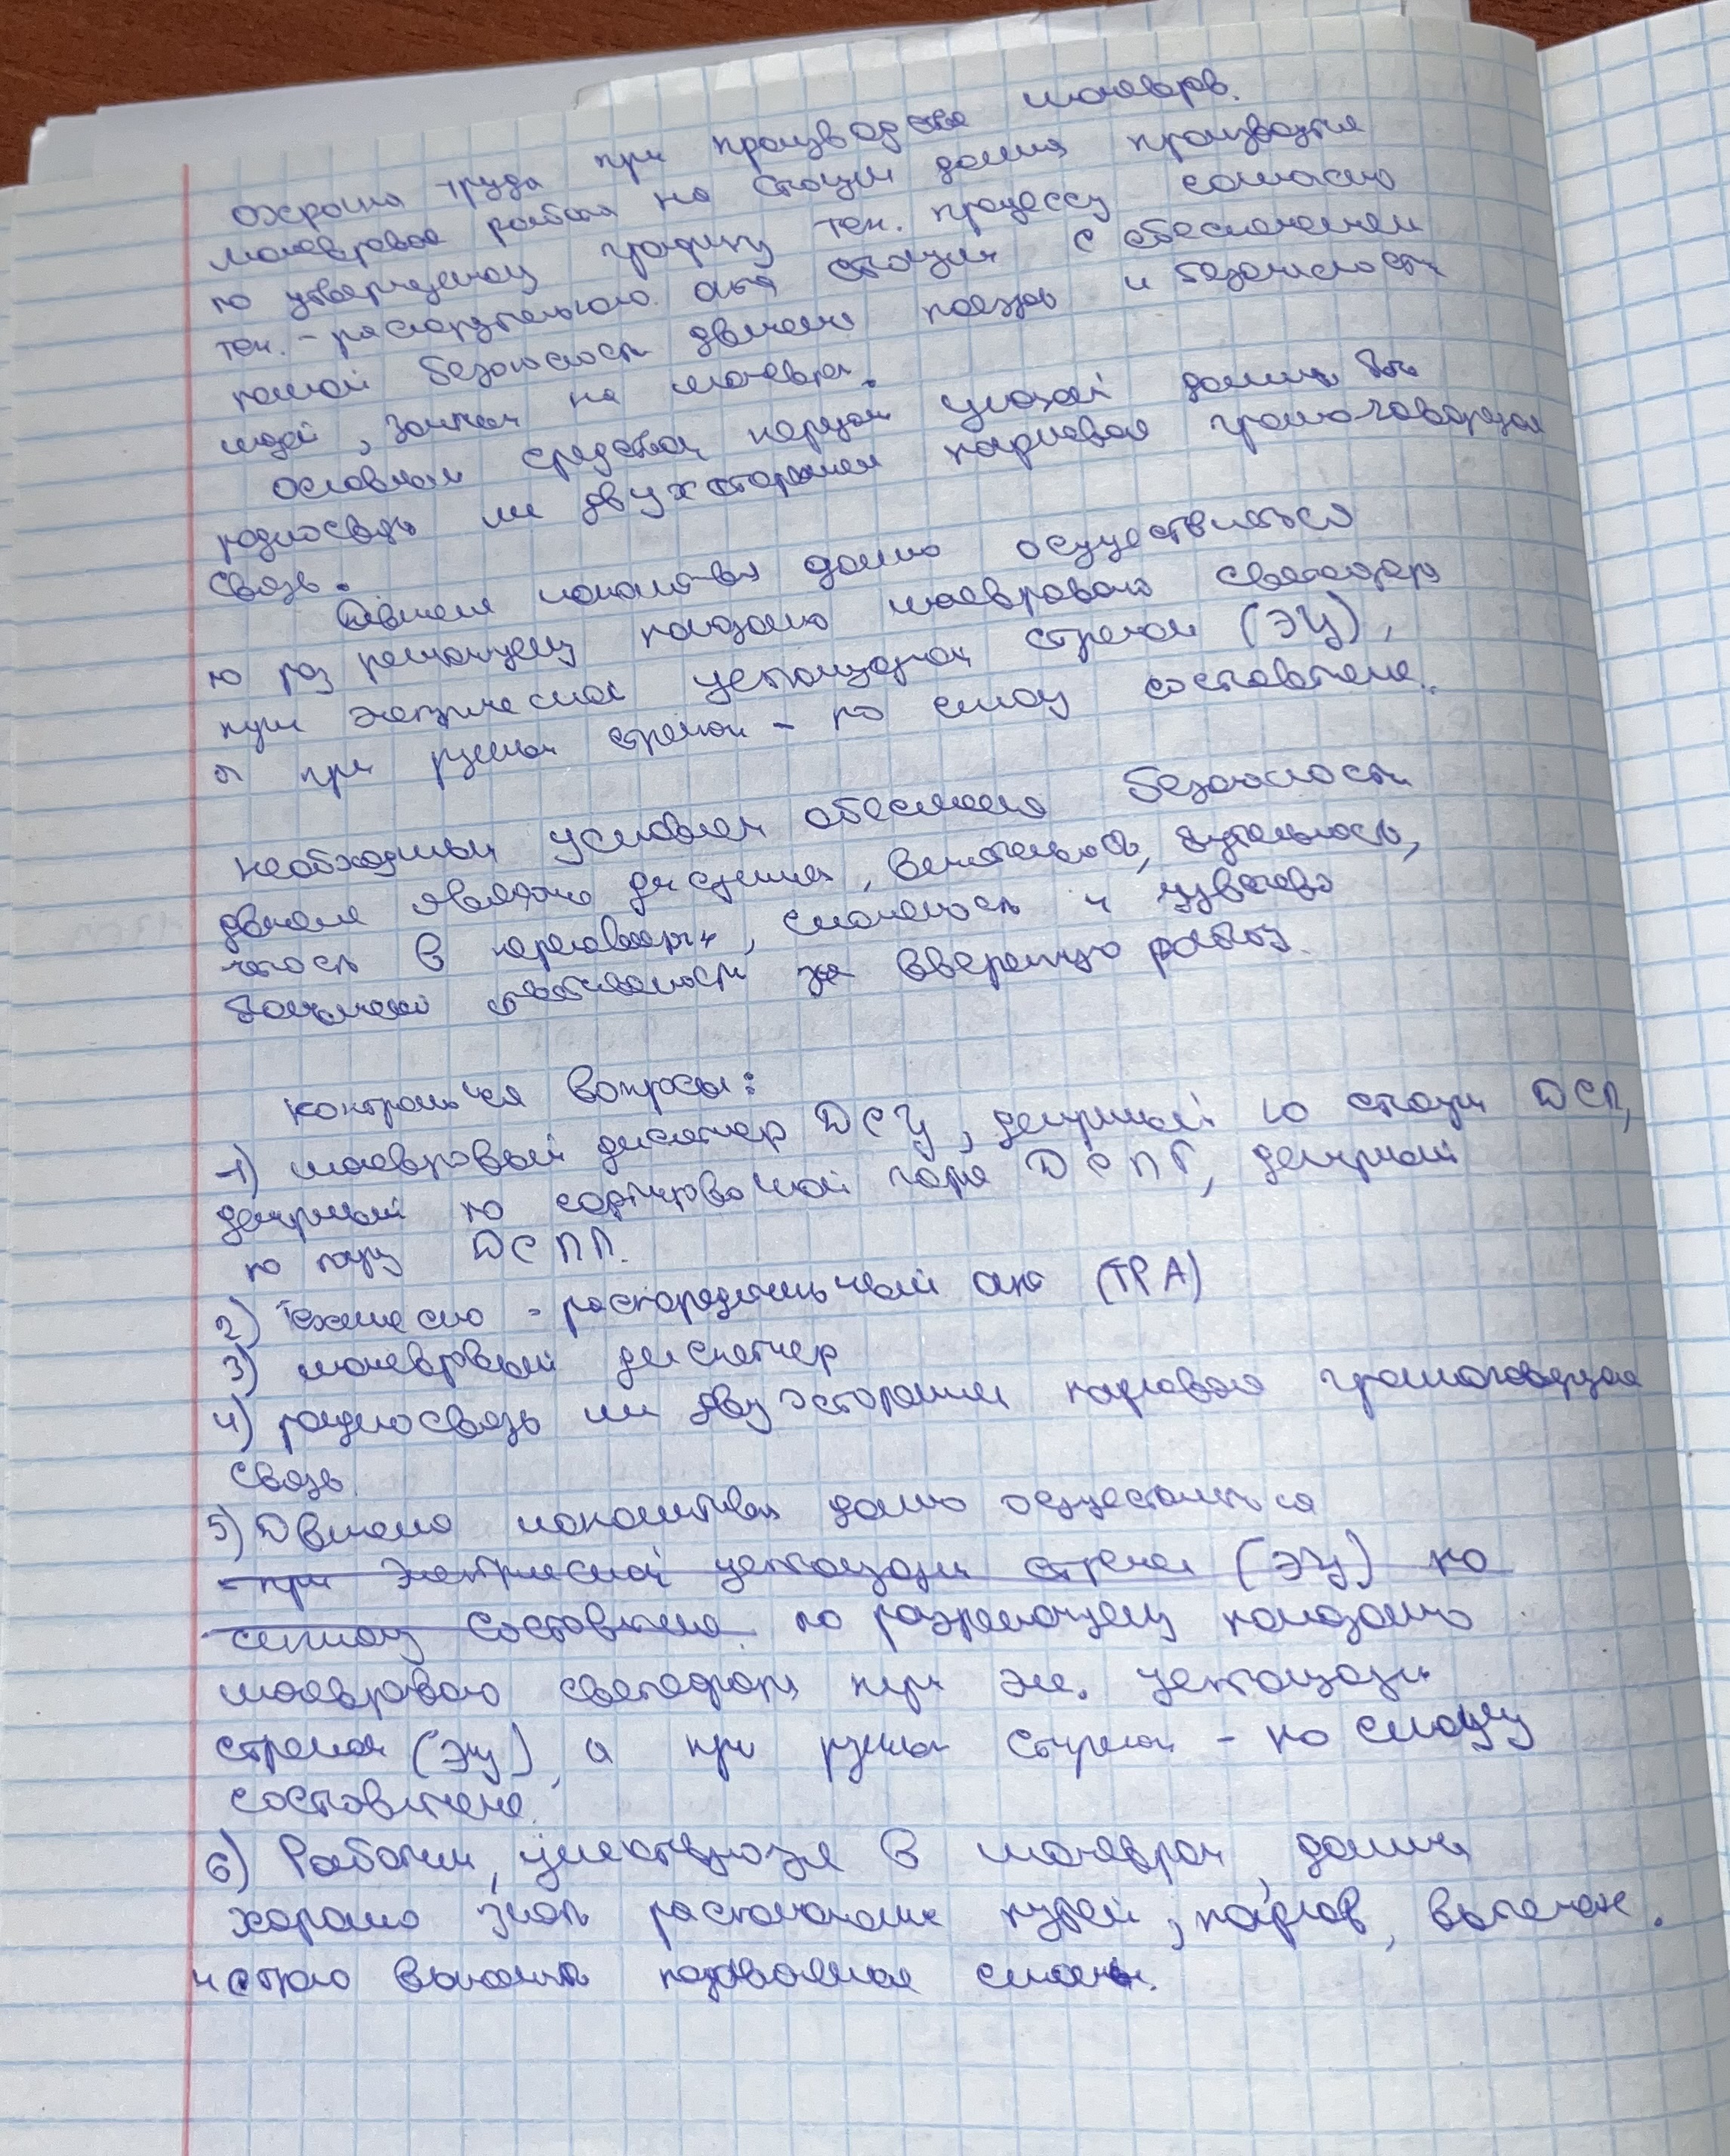 Охрана труда при производстве маневров.
Маневровая работа на станции должна производится
по утвержденному графику тех. процессу согласно
тех. - распорядительного акта станции с обеспечением
полной безопасность движения поездов и безопасности
людей, занятых на маневрах.
Основным средством передачи указаний должны быть
радиосвязь или двухсторонняя парковая громкоговорящая
связь.
Движение локомотива должно осуществляться
по разрешающему показанию маневрового светофора
при электрической централизации стрелок (ЭЦ),
а при ручных стрелок - по сигналу составителя.
Необходимым условием обеспечения безопасности
движения является дисциплина, внимательность, бдительность,
четкость в переговорах, слаженность и чувство
большой ответственности за вверенную работу.
Контрольные вопросы:
1) маневровый диспетчер ДСЦ, дежурный по станции ДСП,
дежурный по сортировочной горке ДСПГ, дежурный
по парку ДСПП.
2) Техническо - распорядительный акт (ТРА)
3) маневровый диспетчер
4) радиосвязь или двухсторонняя парковая громкоговорящая
связь.
5) Движение локомотива должно осуществляться
- при электрической централизации стрелок (ЭЦ) по
сигналу составителя. по разрешающему показанию
маневрового светофора при эл. централизации
стрелок (ЭЦ), а при ручных стрелках - по сигналу
составителя.
6) Работники, участвующие в маневрах, должны
хорошо знать расположение путей, парков, вытяжек.
и строго выполнять подаваемые сигналы.